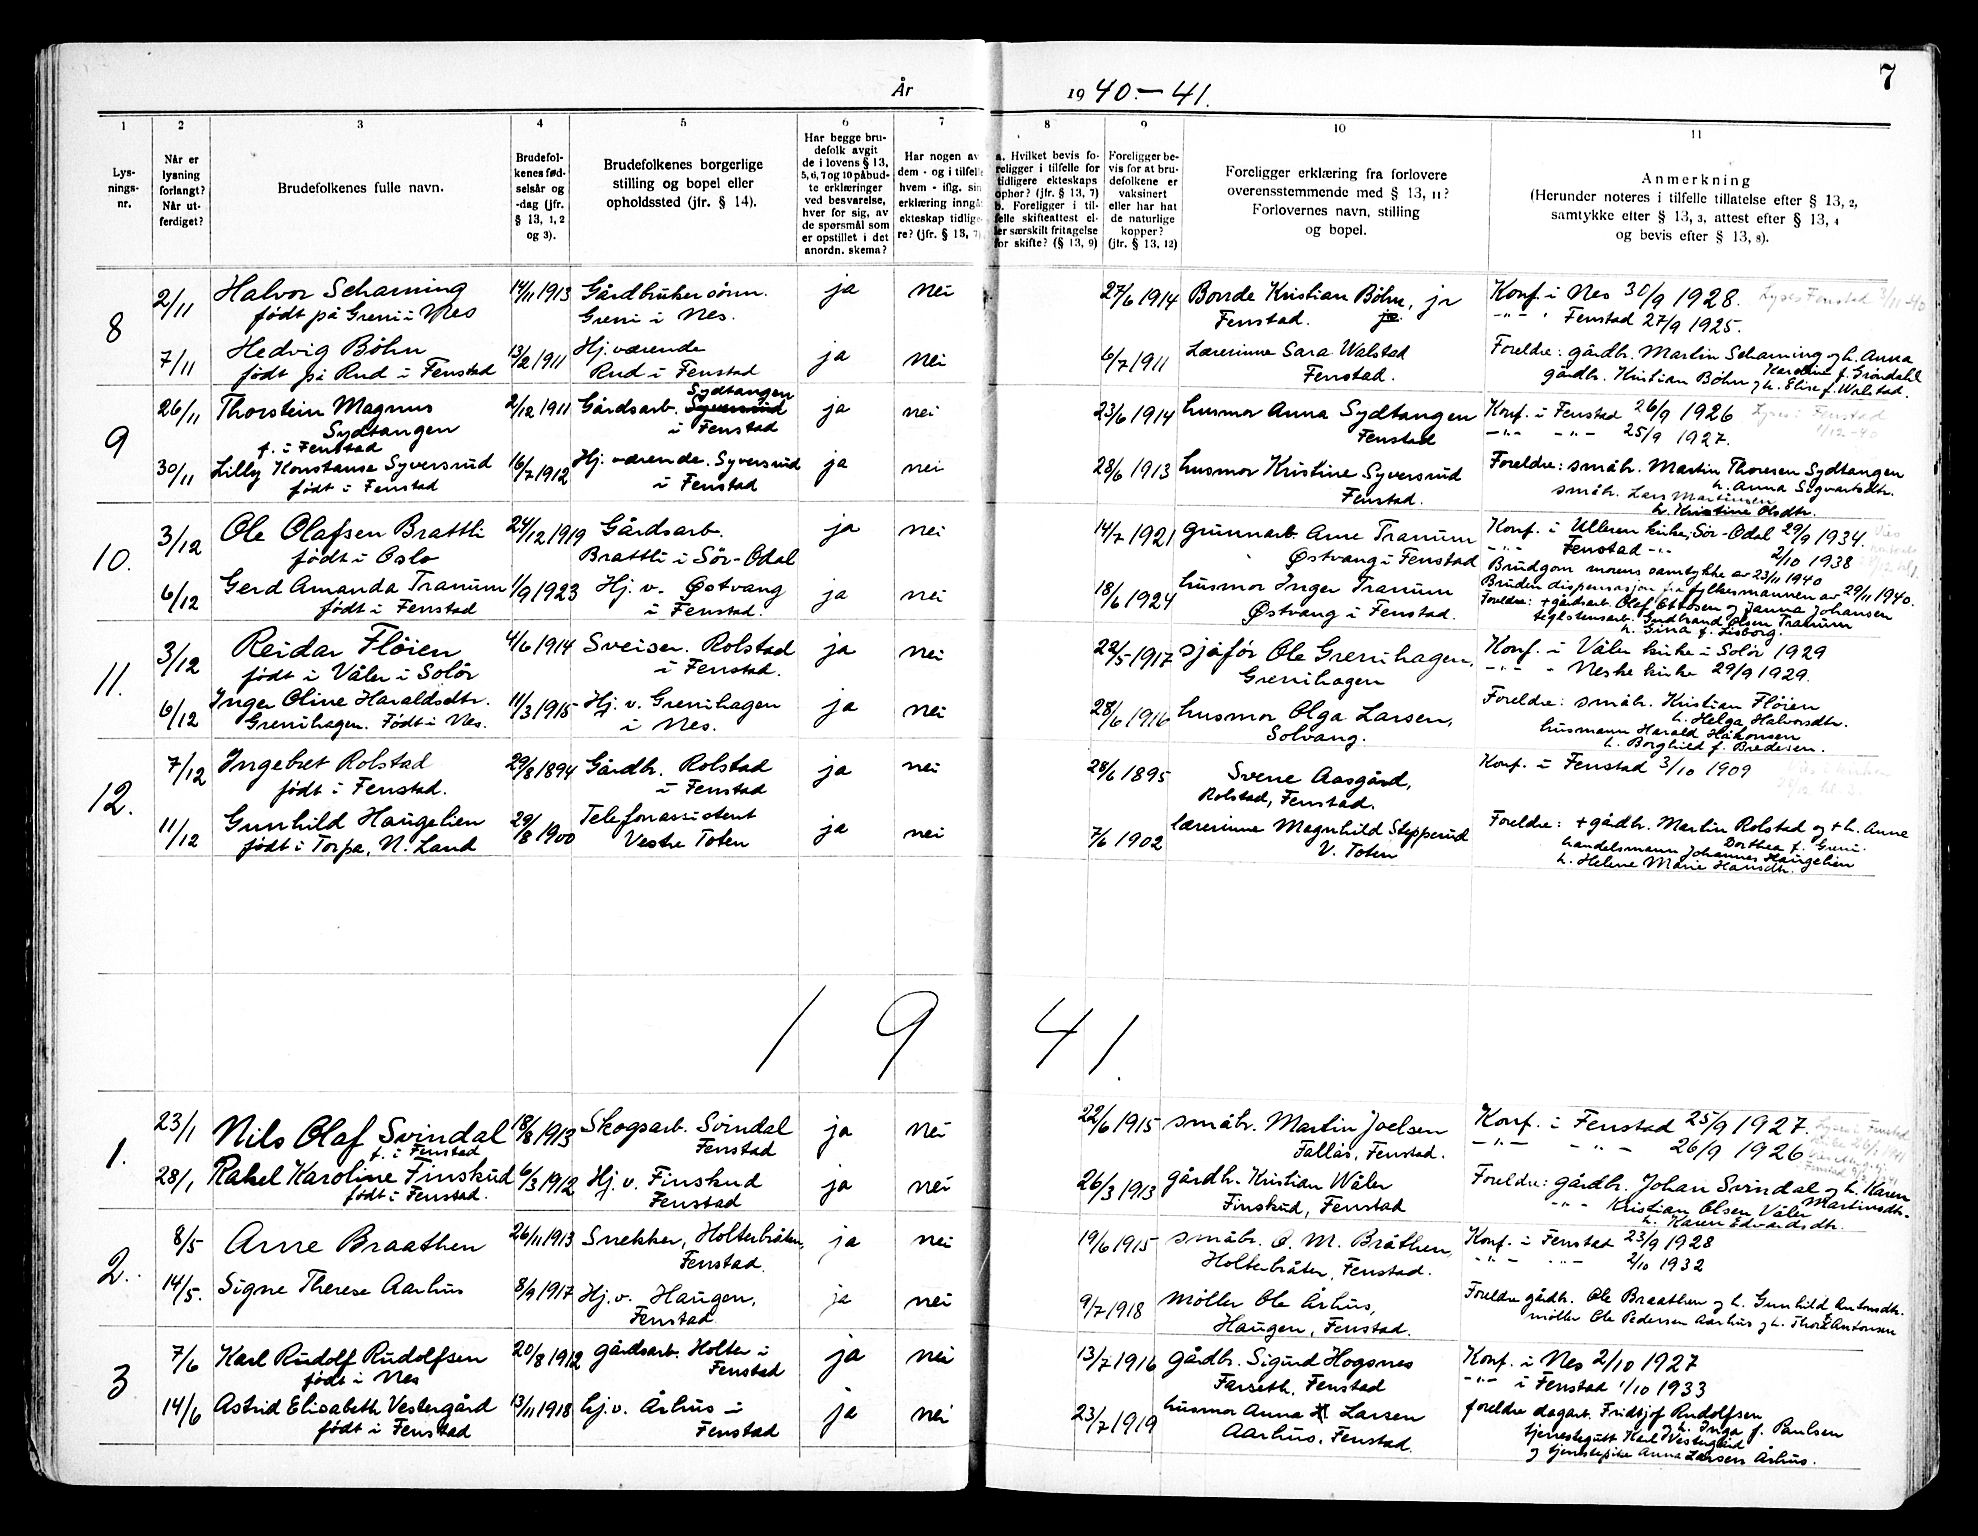 7
År
19 40.-41.
1
2
3
4
5
6
7
8
9
10
11
Lysningsnr.
Når er lysning forlangt? Når utferdiget?
Brudefolkenes fulle navn.
Brudefolkenes fødselsår og -dag (jfr. § 13, 1, 2 og 3).
Brudefolkenes borgerlige stilling og bopel eller opholdssted (jfr. § 14).
Har begge brudefolk avgit de i lovens § 13, 5, 6, 7 og 10 påbudte erklæringer ved besvarelse, hver for sig, av de spørsmål som er opstillet i det anordn. skema?
Har nogen av dem - og i tilfelle hvem - iflg. sin erklæring inngåt ekteskap tidligere? (jfr. § 13, 7).
a. Hvilket bevis foreligger i tilfelle for tidligere ekteskaps ophør? (jfr. § 13, 7) b. Foreligger i tilfelle skifteattest eller særskilt fritagelse for skifte? (§ 13, 9)
Foreligger bevis for at brudefolkene er vaksinert eller har hat de naturlige kopper? (jfr. § 13, 12)
Foreligger erklæring fra forlovere overensstemmende med § 13, 11? Forlovernes navn, stilling og bopel.
Anmerkning (Herunder noteres i tilfelle tillatelse efter § 13, 2, samtykke efter § 13, 3, attest efter § 13, 4 og bevis efter § 13, 8).
8
2/11 Halvor Scharning 14/11 1913 Gårdbrukersönn. ja nei 27/6 1914 Bonde Kristian Böhn, jr Konf. i Nes 30/9 1928. Lyses Fenstad 3/11-40
født på Greni i Nes Greni i Nes. Fenstad. -"- " Fenstad 27/9 1925.
7/11 Hedvig Böhn 13/2 1911 Hj. værende ja nei 6/7 1911 Lærerinne Sara Walstad Foreldre: gårdbr. Martin Scharning og h. Anna
født på Rud i Fenstad Rud i Fenstad Fenstad. Karoline f. Gröndahl
gårdbr. Kristian Böhn og h. Elise f. Walstad.
9
26/11 Thorstein Magnus 2/12 1911 Gårdsarb. Syversrud Sydtangen ja nei 23/6 1914 husmor Anna Sydtangen Konf. i Fenstad 26/9 1926
Sydtangen i Fenstad Fenstad -"- -"- 25/9 1927.
f. i Fenstad
30/11 Lilly Konstanse Syversrud 16/7 1912 Hj. værende. Syversrud ja nei 28/6 1913 husmor Kristine Syversrud Foreldre: småbr. Martin Thoresen Sydtangen
født i Fenstad i Fenstad Fenstad. h. Anna Sigvartsdtr.
småbr. Lars Martinsen
h. Kristine Olsdtr.
10.
3/12 Ole Olafsen Brattli 24/12 1919 Gårdsarb. ja nei 14/7 1921 grunnarb. Arne Tranum Konf. i Ulleren kirke, Sör-Odal 29/9 1934.
født i Oslo Brattli i Sör-Odal Østvang i Fenstad -"- Fenstad -"- 2/10 1938
Brudgom morens samtykke av 23/11 1940
6/12 Gerd Amanda Tranum 1/9 1923 Hj. v. Østvang ja nei 18/6 1924 husmor Inger Tranum Bruden dispensasjon fra fylkesmannen av 29/11 1940.
født i Fenstad i Fenstad. Østvang i Fenstad. Foreldre: + gårdsarb. Olaf Ottosen og Janna Johansen
teglstensarb. Gudbrand Olsen Tranum
h. Gina f. Lisborg.
11.
3/12 Reidar Flöien 4/6 1914 Sveiser. Rolstad ja nei 22/5 1917 sjåför Ole Grenihagen, Konf. i Våler kirke i Solör 1929
født i Våler i Solör i Fenstad. Grenihagen -"- " Neskirke 29/9 1929.
6/12 Inger Oline Haraldsdtr. 11/3 1915 Hj. v. Grenihagen ja nei 28/6 1916 husmor Olga Larsen, Foreldre: småbr. Kristian Flöien
Grenihagen. Født i Nes. i Nes. Solvang. h. Helga Halvorsdtr.
husmann Harald Håkonsen
h. Borghild f. Bredesen.
12.
7/12 Ingebret Rolstad 29/8 1894 Gårdbr. Rolstad ja nei 28/6 1895 Svene Aasgård, Konf. i Fenstad 3/10 1909
født i Fenstad. i Fenstad Rolstad, Fenstad.
11/12 Gunhild Haugelien 29/8 1900 Telefonassistent ja nei 7/6 1902 lærerinne Magnhild Stepperud Foreldre: + gårdbr. Martin Rolstad og + h. Anne
født i Torpa, N. Land Vestre Toten V. Toten Dorthea f. Greni.
handelsmann Johannes Haugelien
h. Helene Marie Hansdtr.
1941.
1.
23/1 Nils Olaf Svindal 18/8 1913 Skogsarb. Svindal ja nei 22/6 1915 småbr. Martin Joelsen Konf. i Fenstad 25/9 1927.
f. i Fenstad Fenstad Fallås, Fenstad. -"- -"- 26/9 1926
28/1 Rakel Karoline Finskud 6/3 1912 Hj. v. Finskud ja nei 26/3 1913 gårdbr. Kristian Wåler Foreldre: gårdbr. Johan Svindal og h. Karen
født i Fenstad. Fenstad Finskud, Fenstad Martinsdtr.
"- Kristian Olsen Våler
h. Karen Edvardsdtr.
2.
8/5 Arne Braathen 26/11 1913 Snekker, Holterbråten, ja nei 19/6 1915 småbr. O. M. Bråthen, Konf. i Fenstad 23/9 1928
Fenstad. Holterbråter, Fenstad. "- -"- 2/10 1932
14/5. Signe Therese Aarhus 8/9 1917 Hj. v. Haugen, ja nei 9/7 1918 Möller Ole Århus, Foreldre gårdbr. Ole Braathen og h. Gunhild Antonsdtr.
Fenstad. Haugen, Fenstad. möller Ole Pedersen Aarhus og h. Thora Antonsen
3
7/6 Karl Rudolf Rudolfsen 20/8 1912 gårdsarb. Holter i ja nei 13/7 1916 gårdbr. Sigurd Hogsnes Konf. i Nes 2/10 1927
født i Nes Fenstad Farseth, Fenstad -"- i Fenstad 1/10 1933
14/6 Astrid Elisabeth Vestergård 13/11 1918 hj. v. Århus i ja nei 23/7 1919 husmor Anna Larsen foreldre dagarb. Fridtjof Rudolfsen
født i Fenstad Fenstad Aarhus, Fenstad. og h. Inga f. Paulsen
tjenestegutt Karl Vestergård
og tjenestepike Anna Larsen Århus.